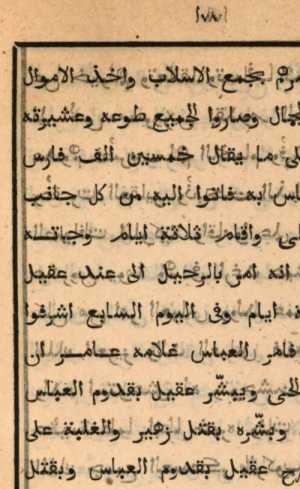 ١٧٨
بجمع الاسلاب واخذ الاموال
وصاروا لجميع طوعه وعشيرته
ما يقال خمسين ألف فارس
به فاتوا اليه من كل جانب
واقام ثلاثة ايام وجباته
انه امر بالرحيل الى عند عقيل
ايام وفى اليوم السابع اشرفوا
فامر العباس غلامه عامر ان
ويبشّر عقيل بقدوم العباس
وبشّره بقتل زهير والغلبة على
عقيل بقدوم العباس وبقتل